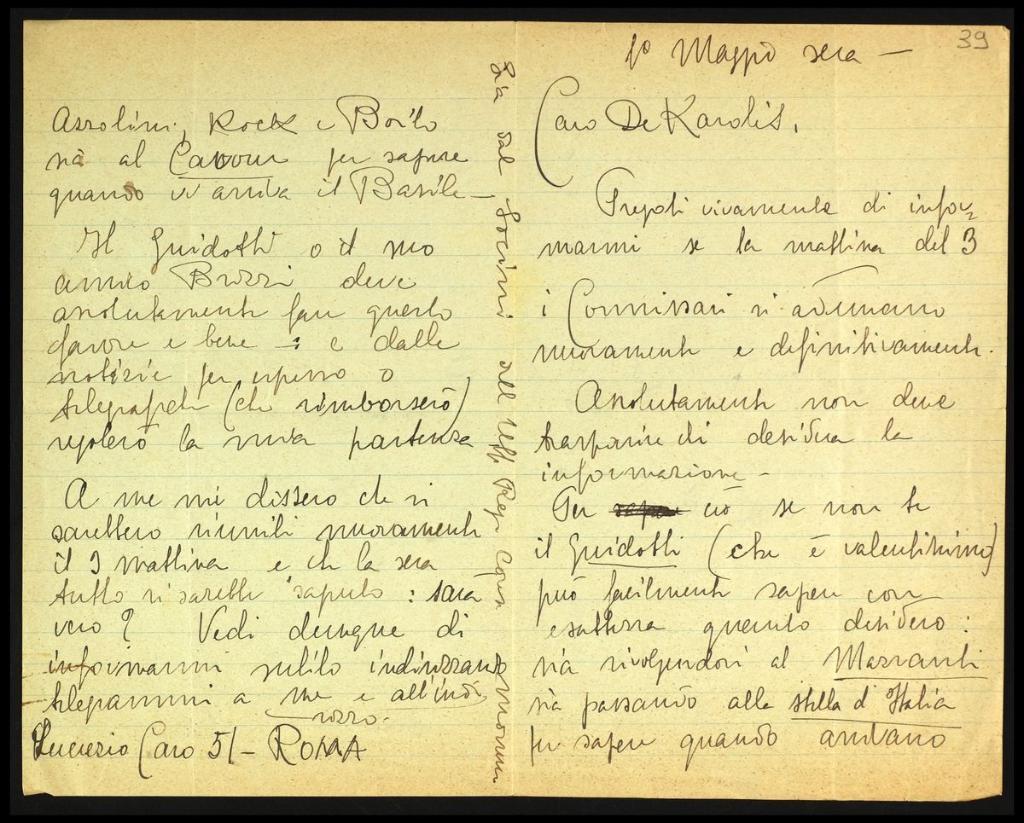 39
1° Maggio sera —
Caro De Karolis,
Pregoti vivamente di infor=
marmi se la mattina del 3
i Commissari si adunano
nuovamente e definitivamente.
Assolutamente non deve
trasparire chi desidera la
informazione —
Per ciò se non te
il Guidotti (che è valentissimo)
può facilmente sapere con
esattezza quanto desidero:
sia rivolgendosi al Mazzanti
sia passando alla stella d'Italia
per sapere quando arrivano
Azzolini, Rock e Boito
sia al Cavour per sapere
quando vi arriva il Basile —
Il Guidotti o il suo
amico Bizzi deve
assolutamente fare questo
favore e bene —: e dalle
notizie per espresso o
telegrafate (che rimborserò)
regolerò la mia partenza
A me mi dissero che si
sarebbero riuniti nuovamente
il 3 mattina e che la sera
tutto si sarebbe saputo: sarà
vero? Vedi dunque di
informarmi subito indirizzando
telegrammi a me e all'indi
rizzo.
Lucrezio Caro 51 — ROMA
Sia dal Socini all' Uff. Reg.